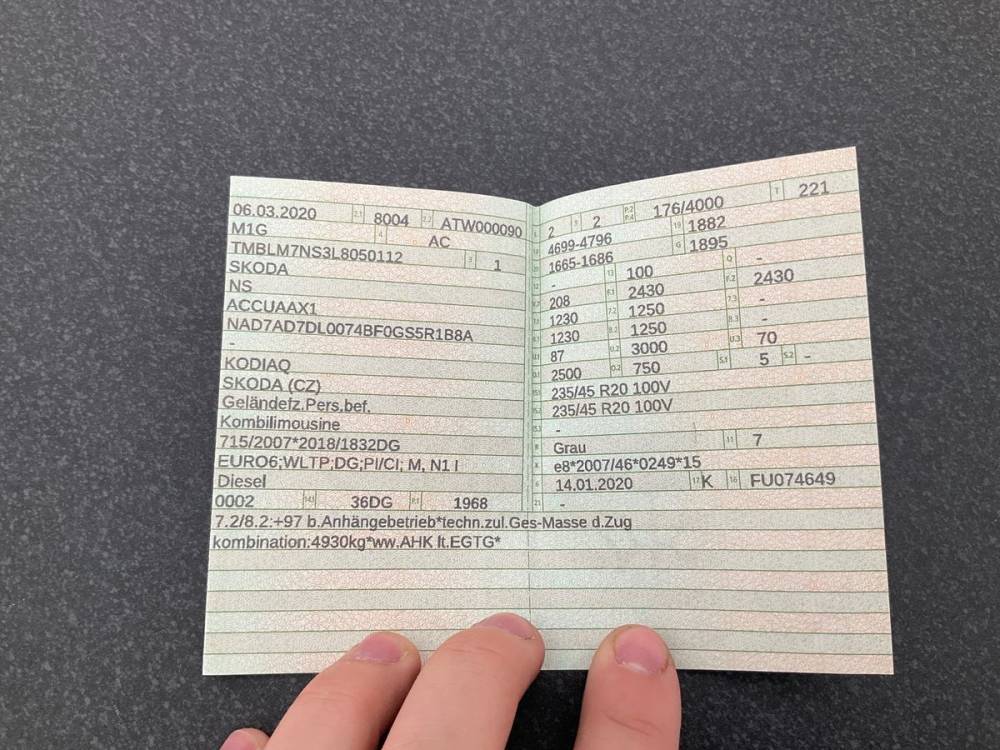 06.03.2020 2.1 8004 2.2 ATW000090
M1G 4 AC
TMBLM7NS3L8050112 3 1
SKODA
NS
ACCUAAX1
NAD7AD7DL0074BF0GS5R1B8A
-
KODIAQ
SKODA (CZ)
Geländefz.Pers.bef.
Kombilimousine
715/2007*2018/1832DG
EURO6;WLTP;DG;PI/CI; M, N1 I
Diesel
0002 14.1 36DG P.1 1968
7.2/8.2:+97 b.Anhängebetrieb*techn.zul.Ges-Masse d.Zug
kombination:4930kg*ww.AHK lt.EGTG*
2 9 2 P.2 P.4 176/4000 T 221
4699-4796 19 1882
1665-1686 G 1895
- 13 100 Q -
208 F.1 2430 F.2 2430
1230 7.2 1250 7.3 -
1230 8.2 1250 8.3 -
87 U.2 3000 U.3 70
2500 O.2 750 S.1 5 S.2 -
235/45 R20 100V
235/45 R20 100V
-
Grau 11 7
e8*2007/46*0249*15
14.01.2020 17 K 16 FU074649
21 -